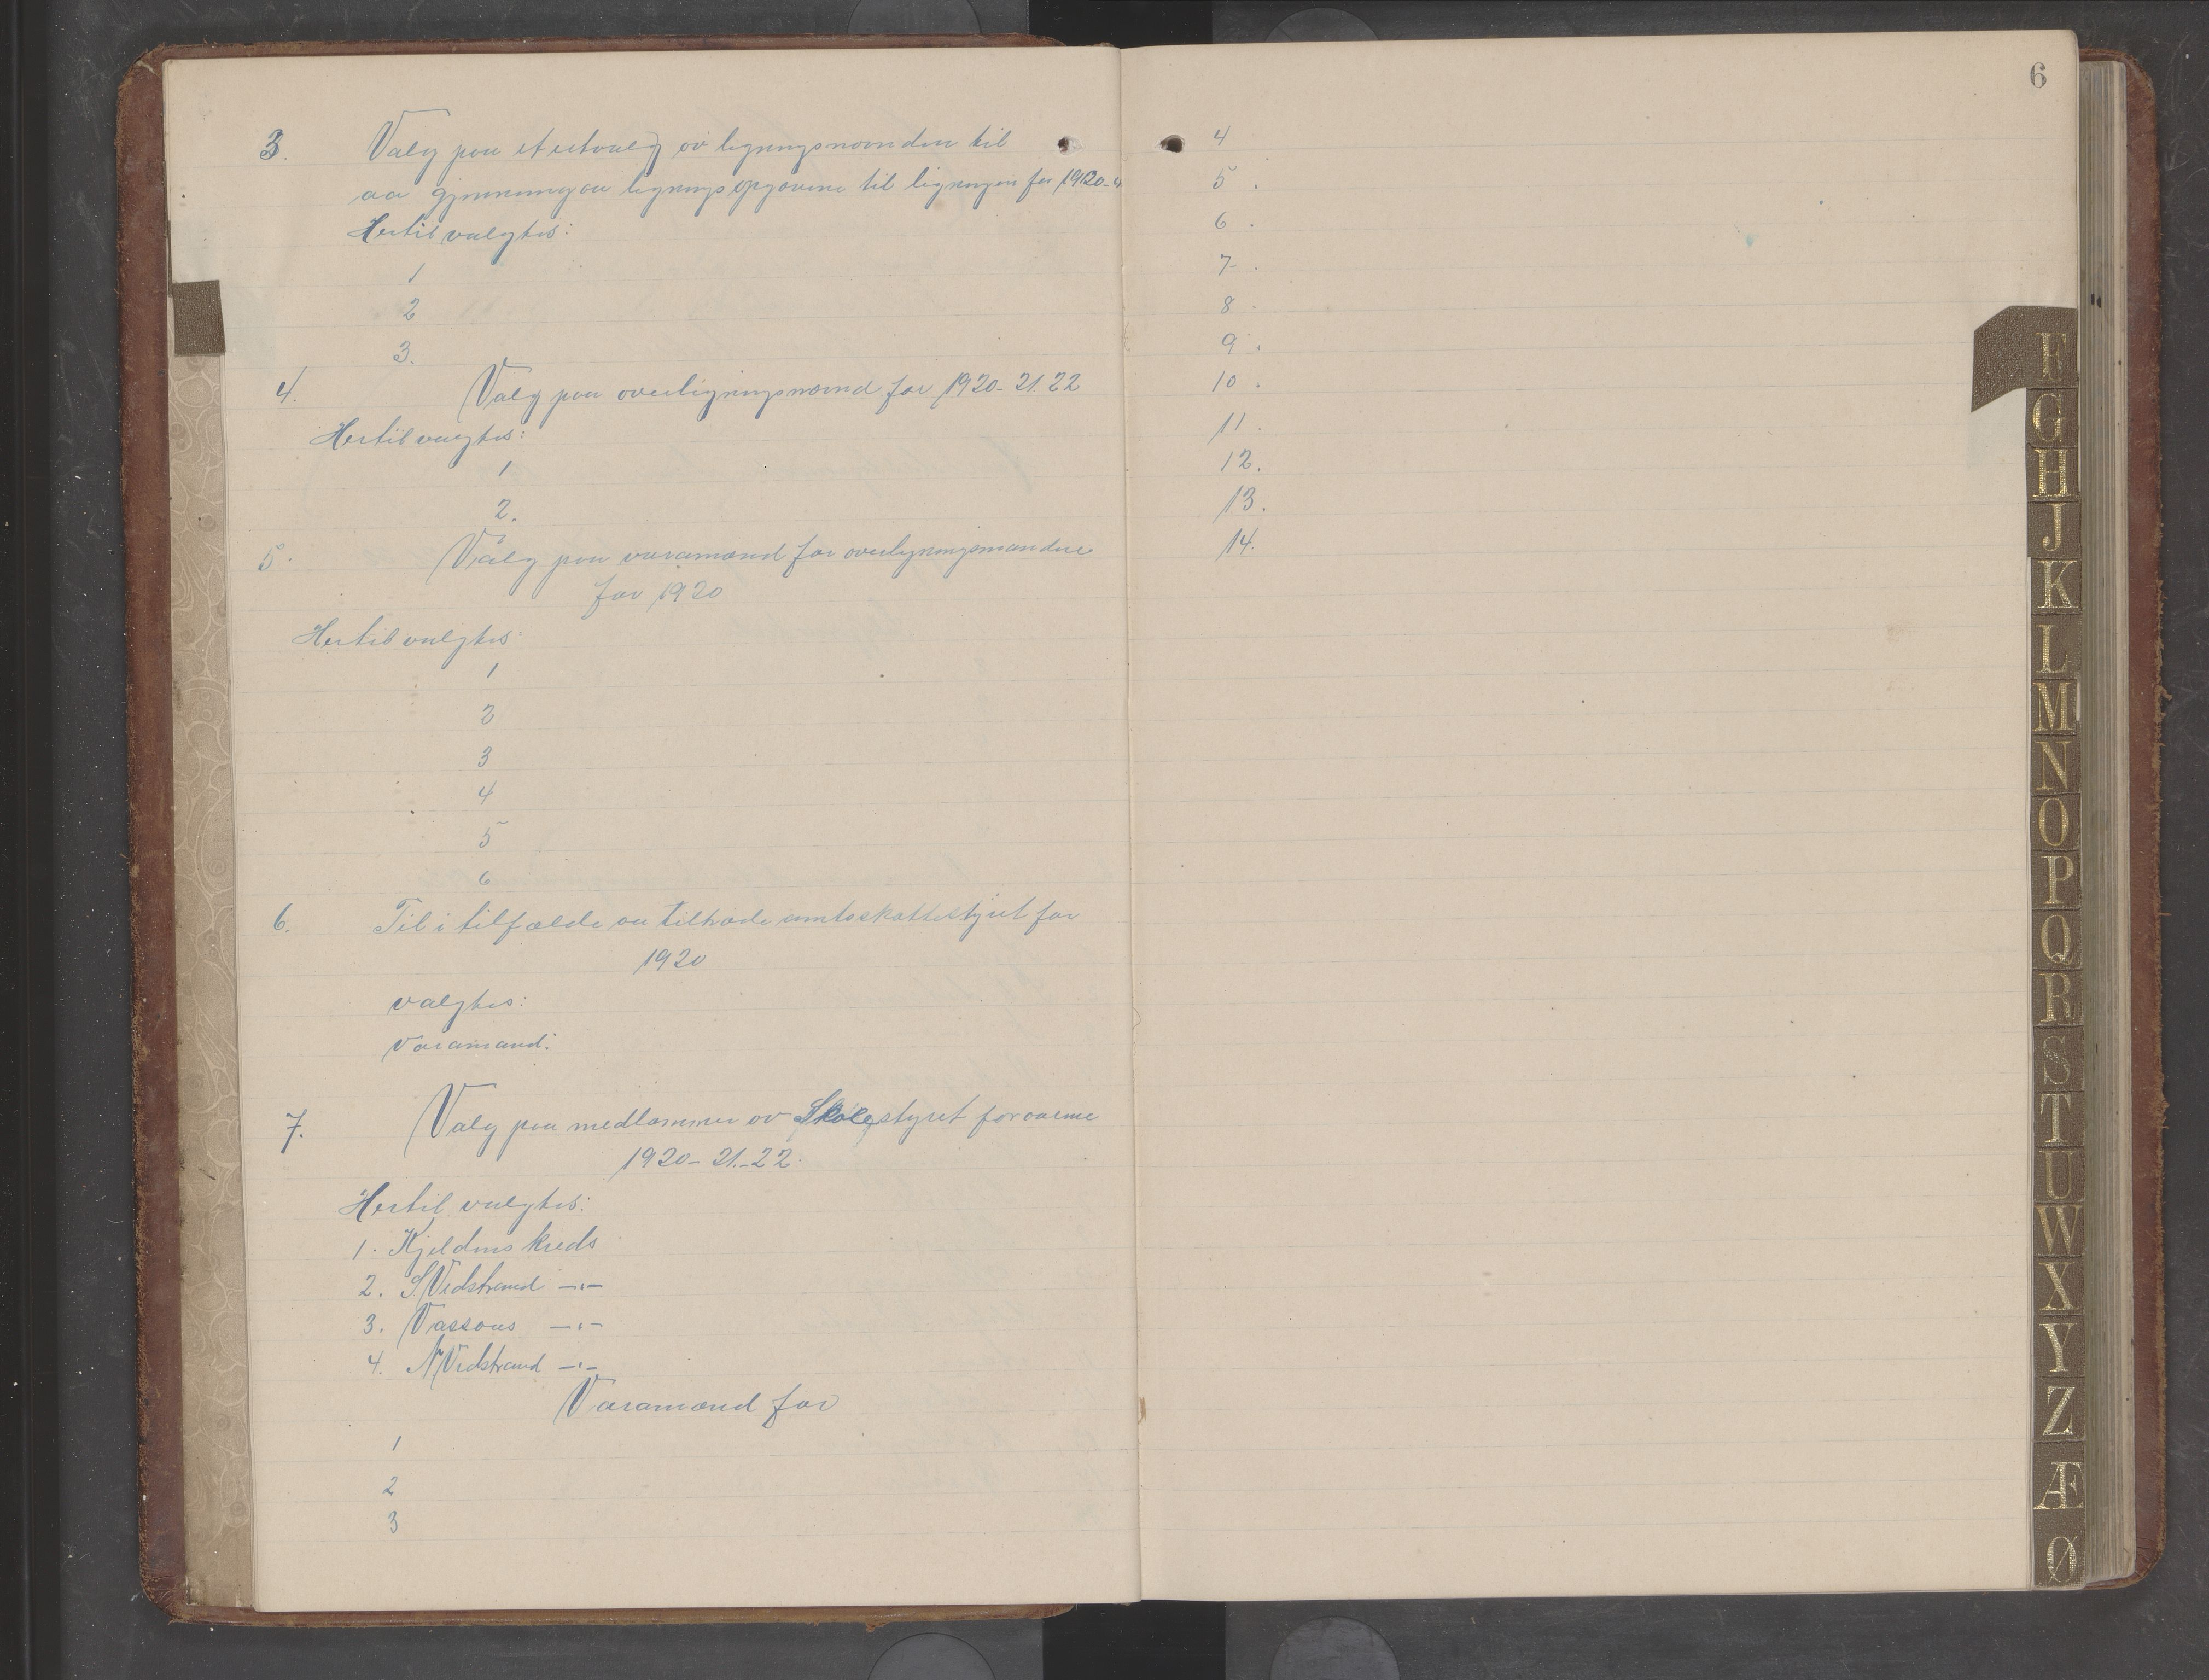 3. Valg paa et utvalg av ligningsnævnden til
aa gjennemgaa ligningsopgavene til ligningen for 1920-
Hertil valgtes:
1
2
3.
4. Valg paa overligningsnævnd for 1920-21.22
Hertil valgtes:
1
2.
5. Valg paa varamænd for overligningsmændene
for 1920
Hertil valgtes:
1
2
3
4
5
6
6. Til i tilfælde aa tiltræde amtsskattestyret for
1920
valgtes:
Varamand:
7. Valg paa medlæmmer av Skolestyret for aarene
1920-21.-22.
Hertil valgtes:
1. Kjeldens kreds
2. S. Vedstrand -"-
3. Vassaas -"-
4. N Vedstrand -"-
Varamænd for
1
2
3
6
4
5.
6.
7.
8.
9.
10.
11.
12.
13.
14.
F
G
H
J
K
L
M
N
O
P
Q
R
S
T
U
W
X
Y
Z
Æ
Ø